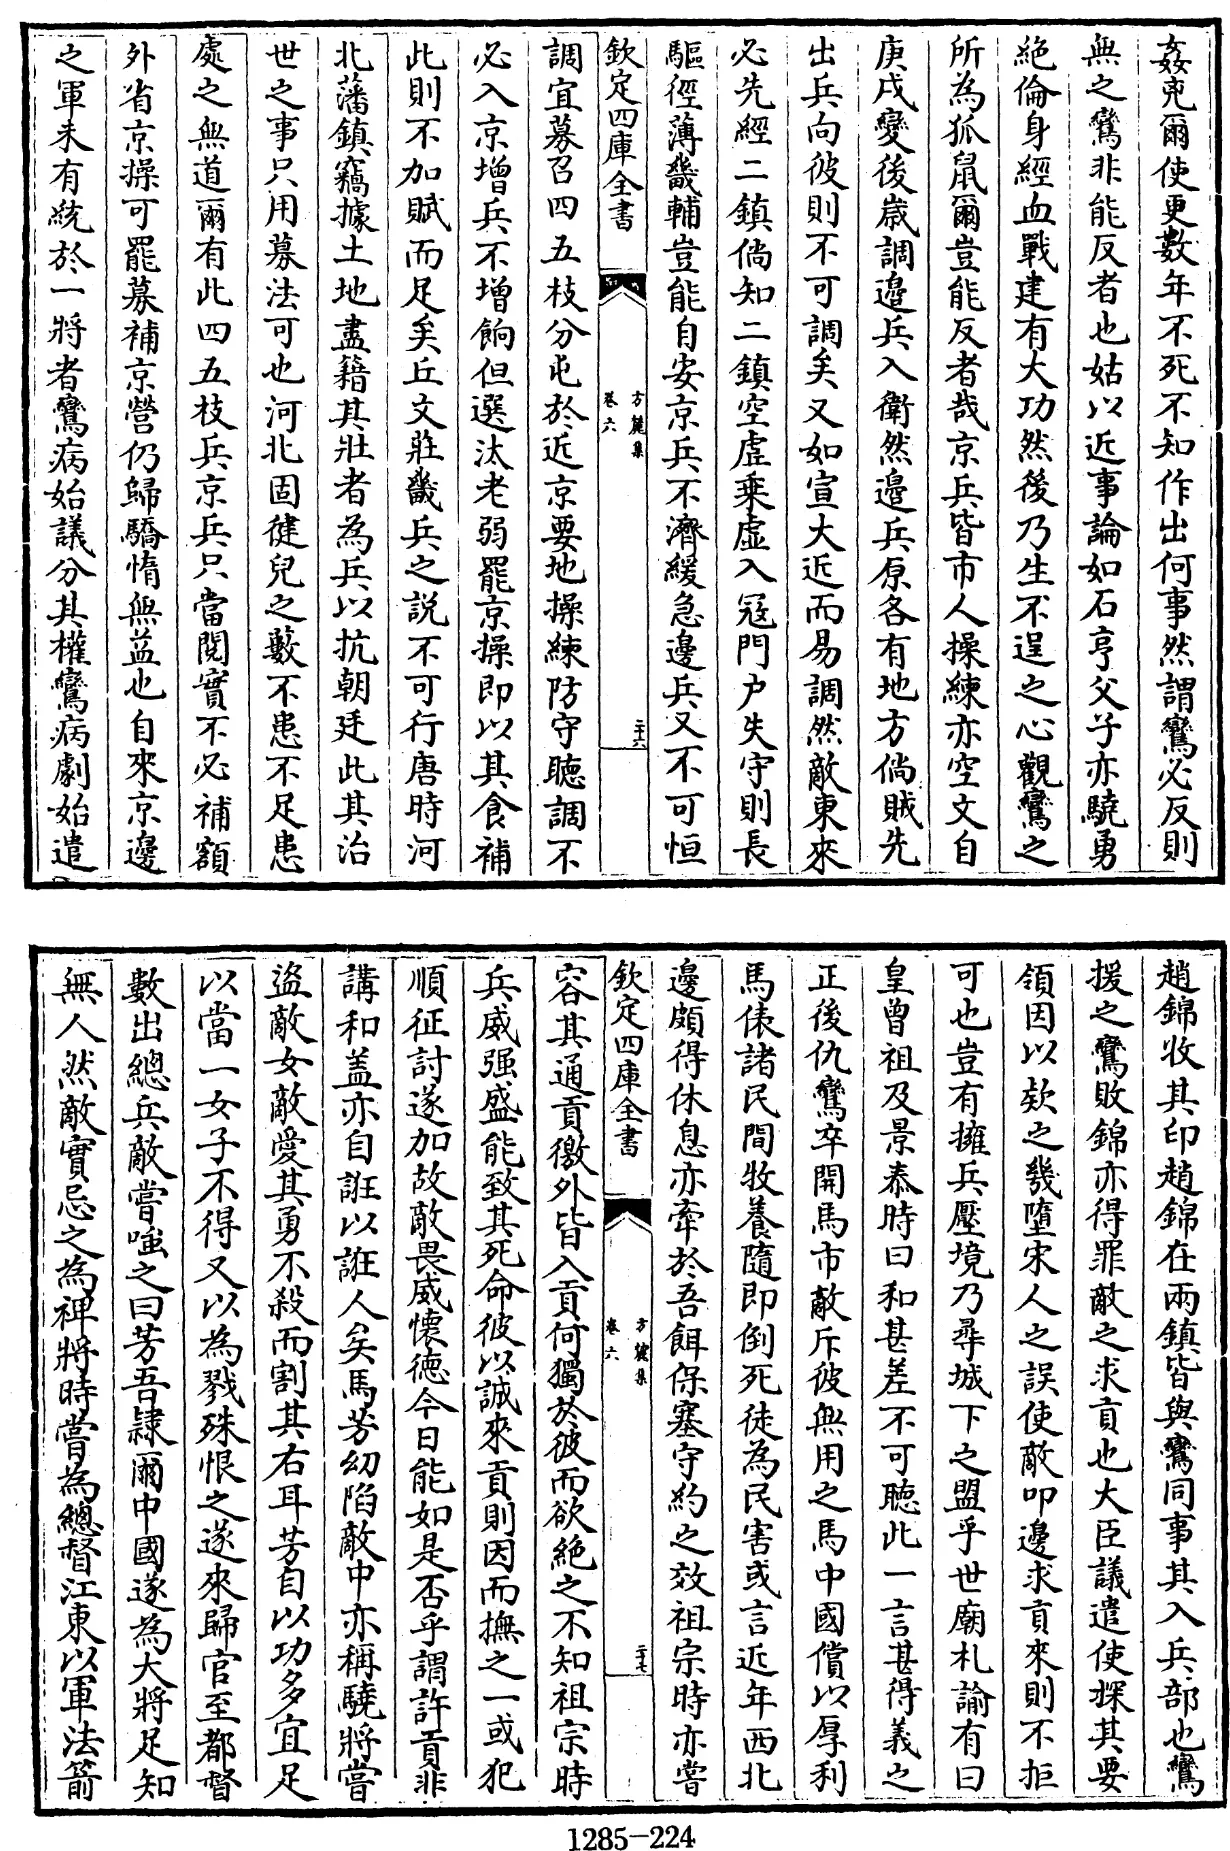 姦兇爾使更數年不死不知作出何事然謂鸞必反則
無之鸞非能反者也姑以近事論如石亨父子亦驍勇
絶倫身經血戰建有大功然後乃生不逞之心觀鸞之
所為狐鼠爾豈能反者哉京兵皆市人操練亦空文自
庚戌變後歲調邊兵入衛然邊兵原各有地方倘賊先
出兵向彼則不可調矣又如宣大近而易調然敵東來
必先經二鎮倘知二鎮空虛乗虛入冦門户失守則長
驅徑薄畿輔豈能自安京兵不濟緩急邊兵又不可恒
欽定四庫全書
方麓集
卷六
二十六
調宜募召四五枝分屯於近京要地操練防守聽調不
必入京增兵不增餉但選汰老弱罷京操即以其食補
此則不加賦而足矣丘文莊畿兵之説不可行唐時河
北藩鎮竊據土地盡籍其壯者為兵以抗朝廷此其治
世之事只用募法可也河北固健兒之藪不患不足患
處之無道爾有此四五枝兵京兵只當閲實不必補額
外省京操可罷募補京營仍歸驕惰無益也自來京邊
之軍未有統於一將者鸞病始議分其權鸞病劇始遣
趙錦收其印趙錦在兩鎮皆與鸞同事其入兵部也鸞
援之鸞敗錦亦得罪敵之求貢也大臣議遣使探其要
領因以欵之幾墮宋人之誤使敵叩邊求貢來則不拒
可也豈有擁兵壓境乃尋城下之盟乎世廟札諭有曰
皇曾祖及景泰時曰和甚差不可聽此一言甚得義之
正後仇鸞卒開馬市敵斥彼無用之馬中國償以厚利
馬俵諸民間牧養隨即倒死徒為民害或言近年西北
邊頗得休息亦牽於吾餌保塞守約之效祖宗時亦嘗
欽定四庫全書
方麓集
卷六
二十七
容其通貢徼外皆入貢何獨於彼而欲絶之不知祖宗時
兵威强盛能致其死命彼以誠來貢則因而撫之一或犯
順征討遂加故敵畏威懷德今日能如是否乎謂許貢非
講和盖亦自誑以誑人矣馬芳幼陷敵中亦稱驍將嘗
盜敵女敵愛其勇不殺而割其右耳芳自以功多宜足
以當一女子不得又以為戮殊恨之遂來歸官至都督
數出總兵敵嘗嗤之曰芳吾隷爾中國遂為大將足知
無人然敵實忌之為裨將時嘗為總督江東以軍法箭
1285-224